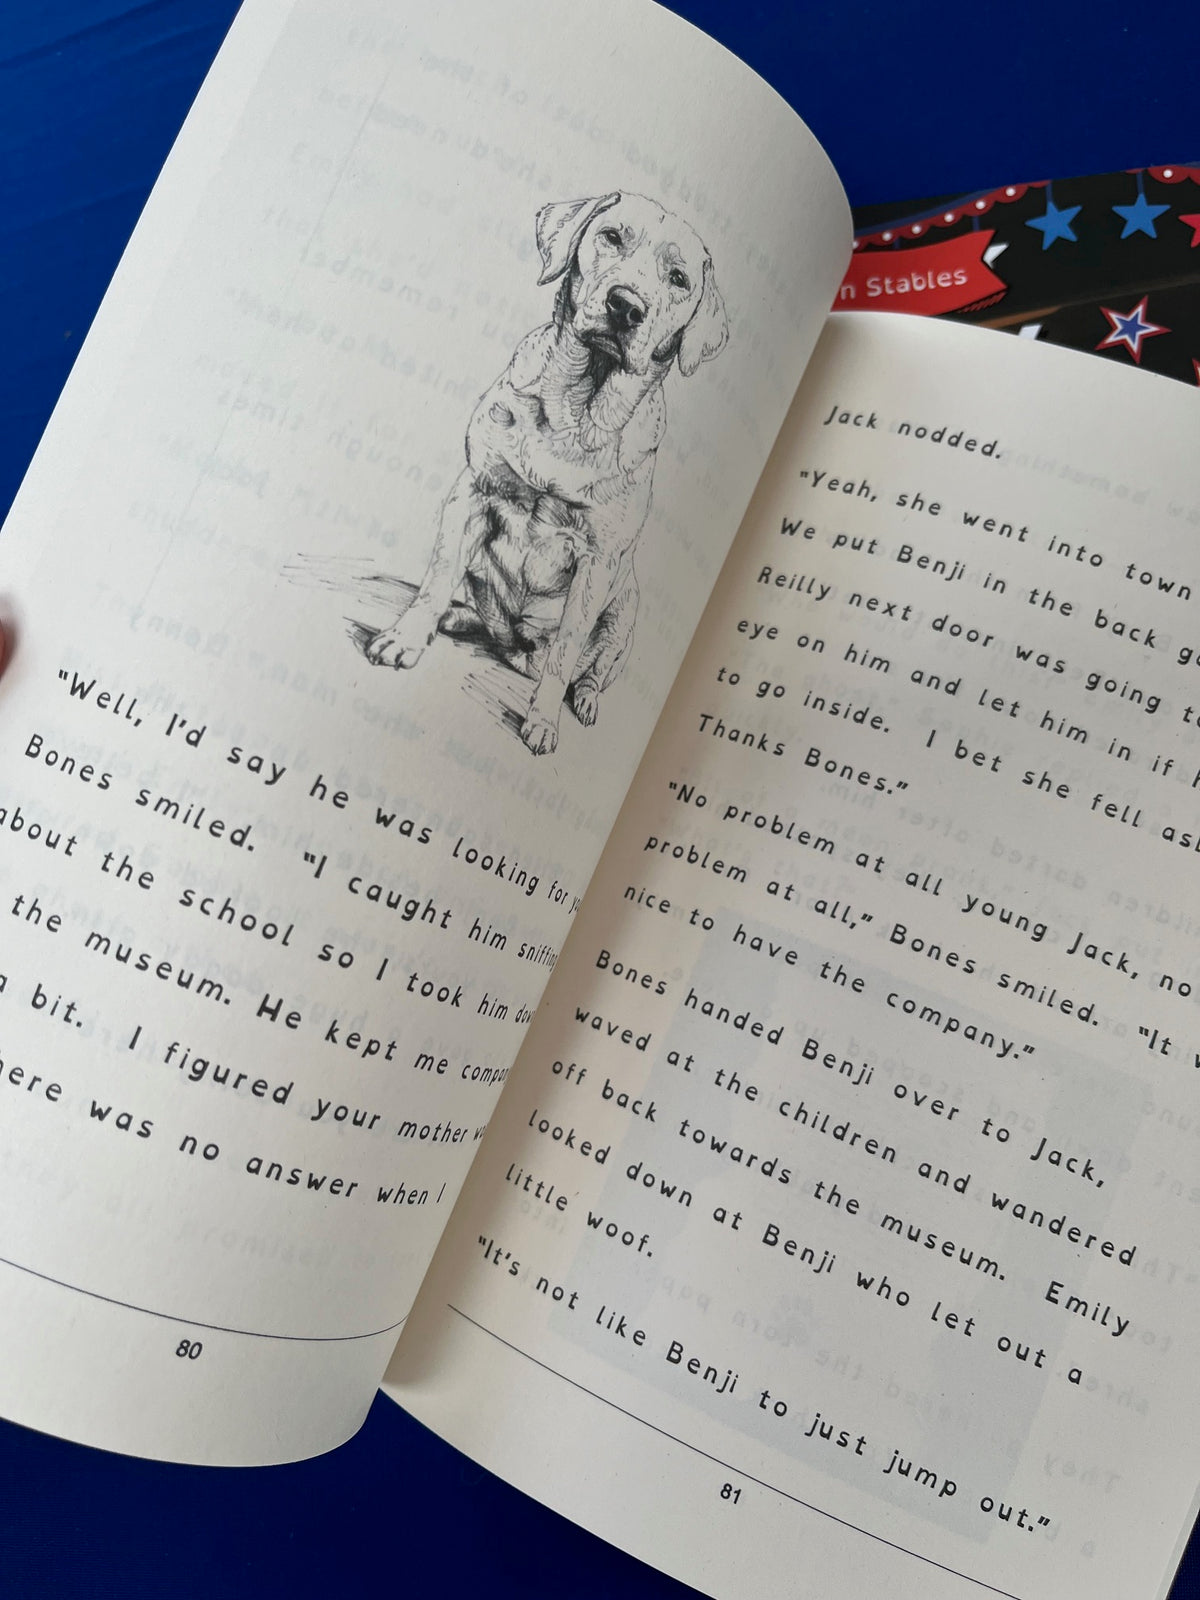 "Well, I'd say he was looking for
Bones smiled. "I caught him sniffing
about the school so I took him
the museum. He kept me
a bit. I figured your mother
was no answer when I
80
n Stables
Jack nodded.
"Yeah, she went into town
We put Benji in the back
Reilly next door was going
eye on him and let him in if
to go inside. I bet she fell
Thanks Bones."
"No problem at all young Jack, no
problem at all," Bones smiled. "It
nice to have the company."
Bones handed Benji over to Jack,
waved at the children and wandered
off back towards the museum. Emily
looked down at Benji who let out a
little woof.
"It's not like Benji to just jump out."
81